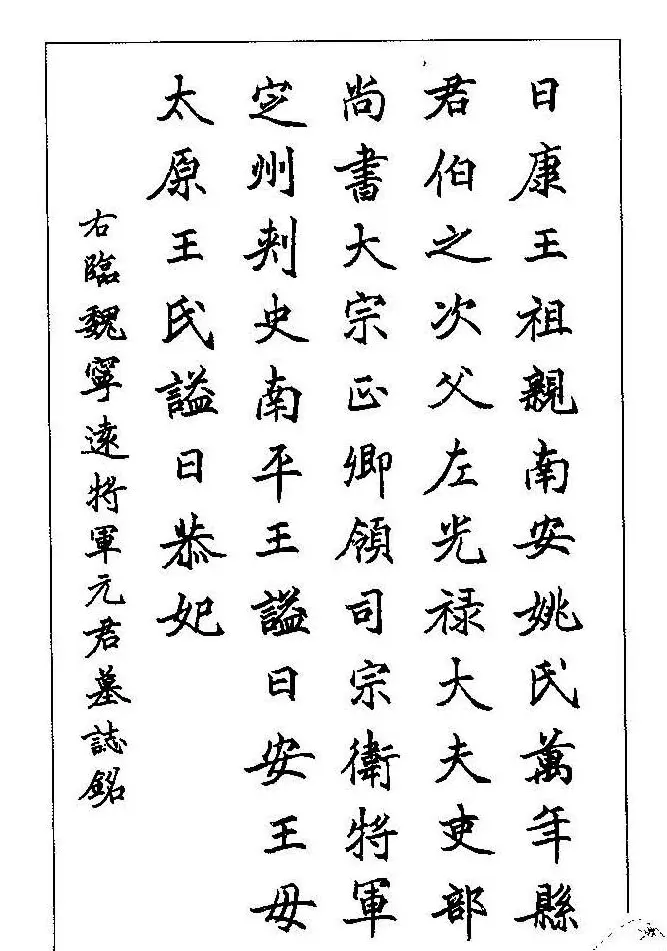 日康王祖親南安姚氏萬年縣
君伯之次父左光禄大夫吏部
尚書大宗正卿領司宗衛將軍
定州刺史南平王謚曰安王毋
太原王氏謚曰恭妃
右臨魏寧遠将軍元君墓誌銘